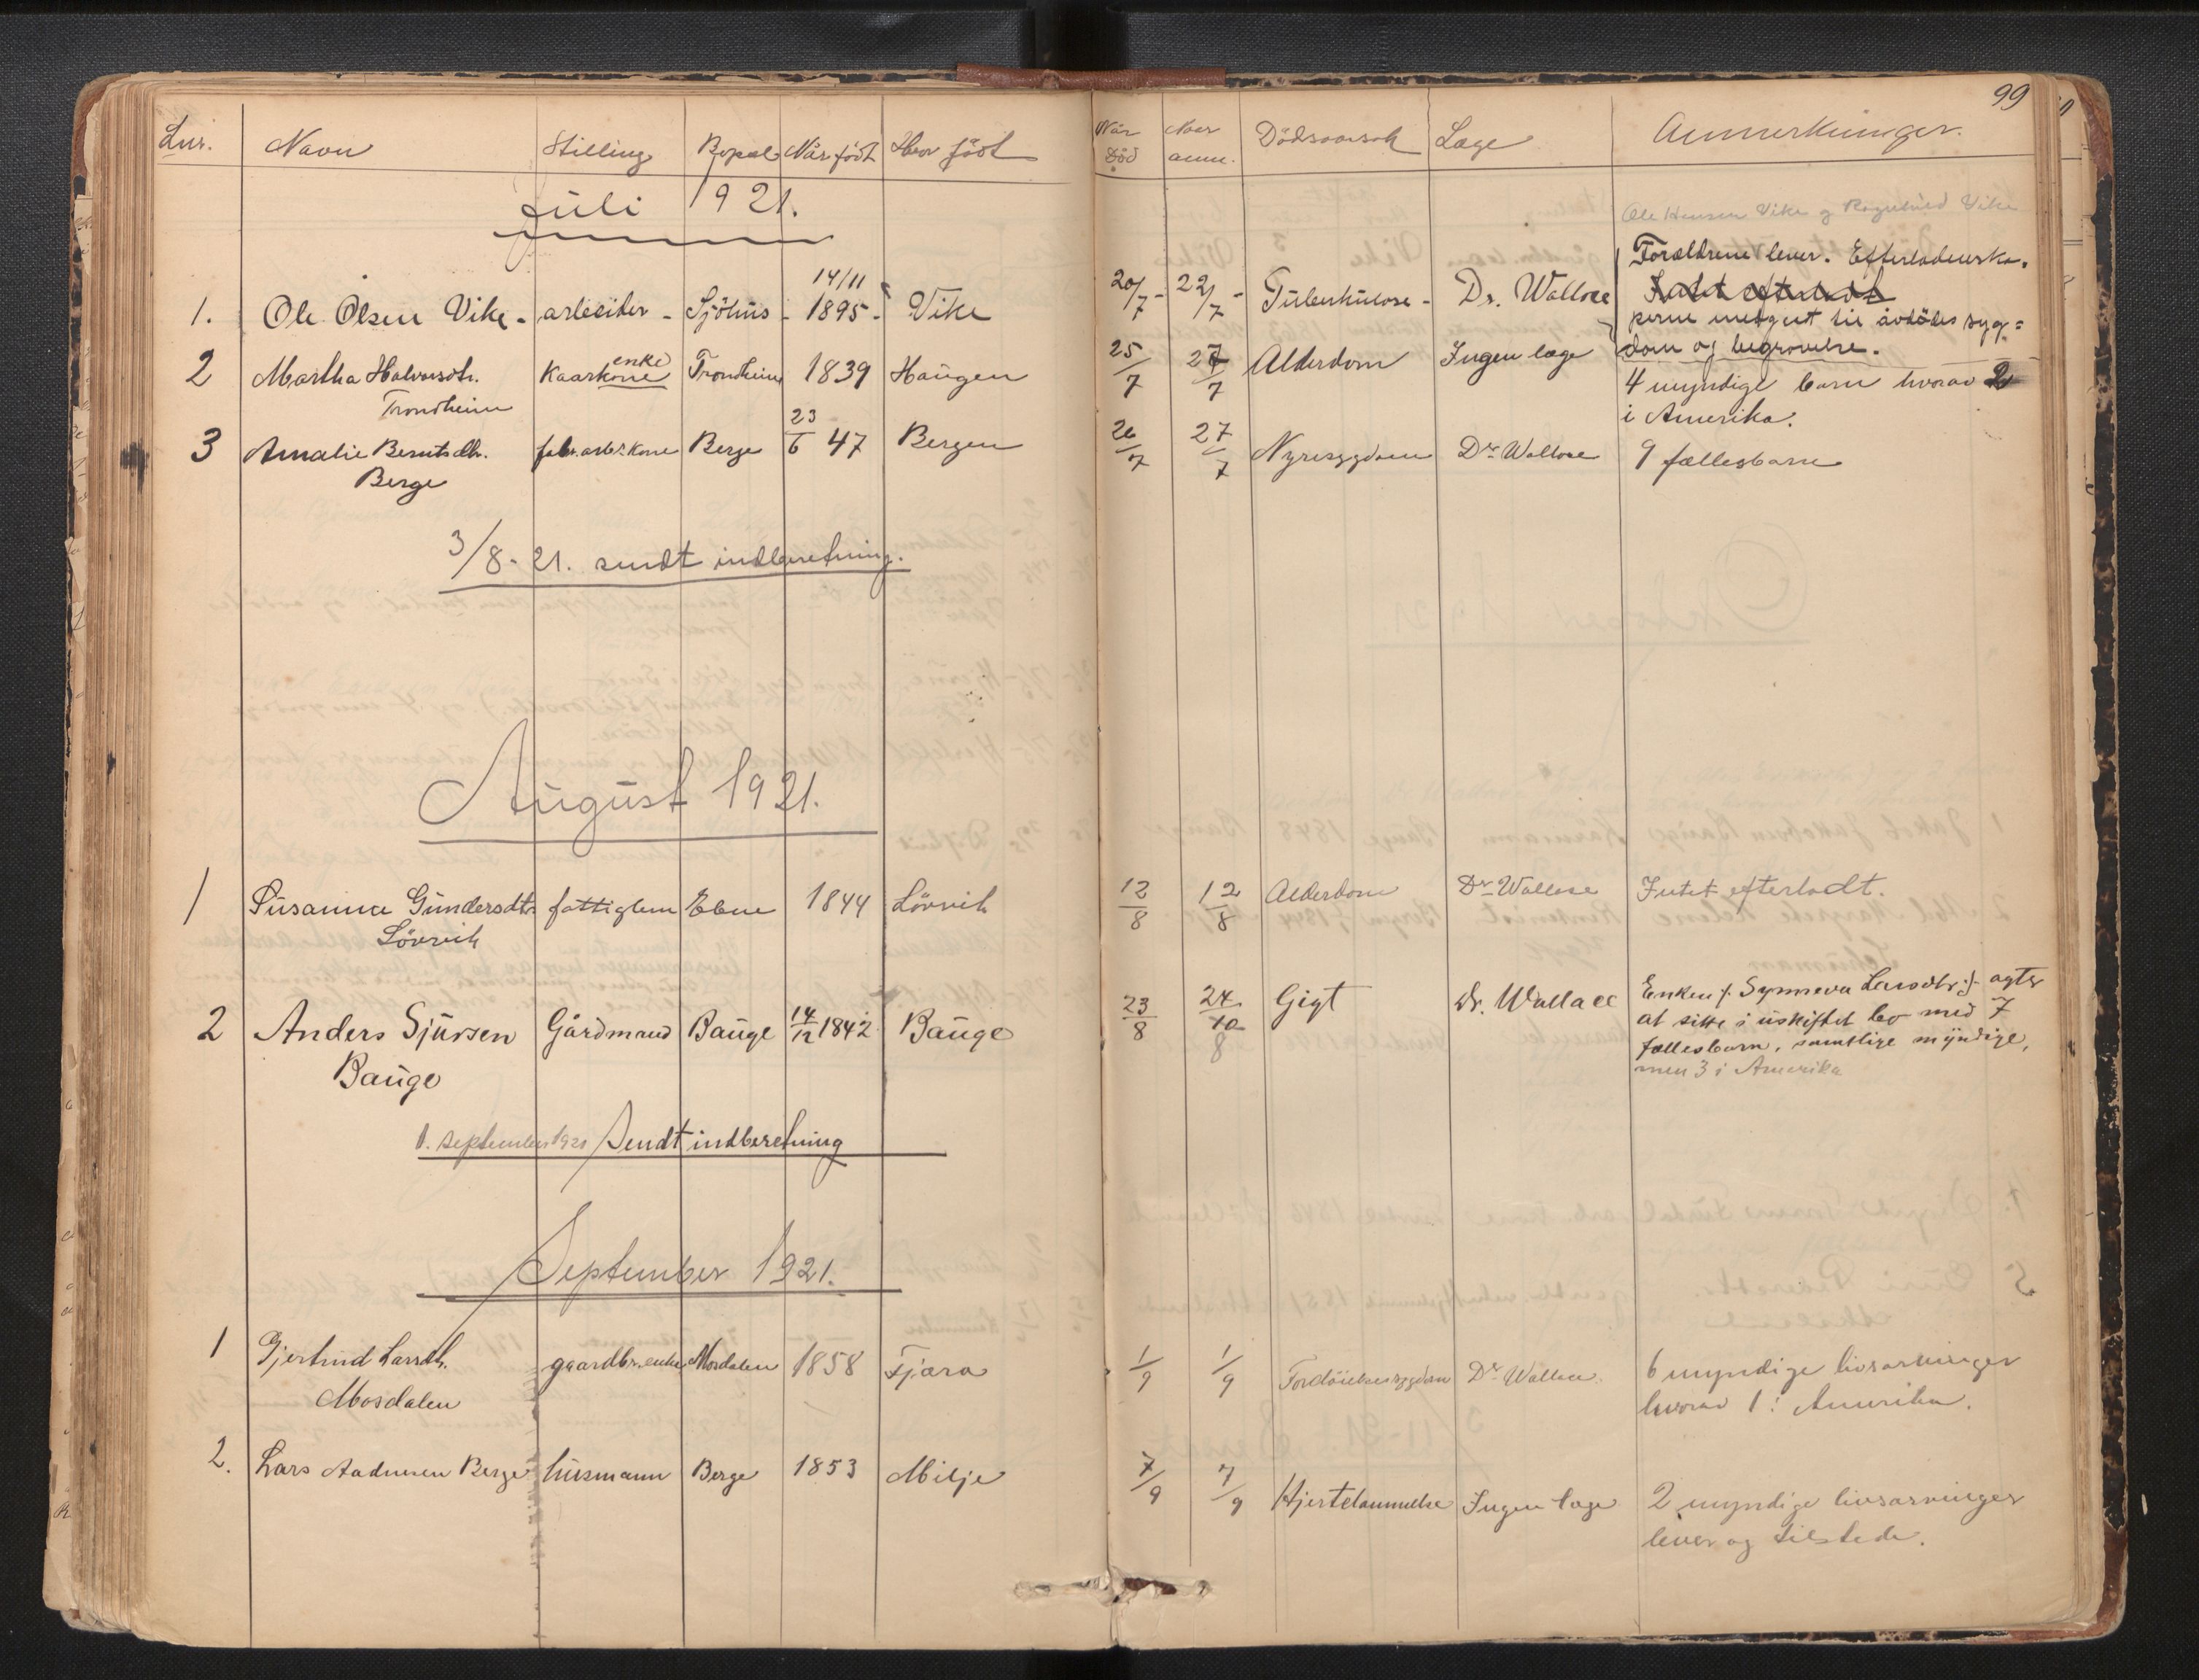 99
Lnr. Navn Stilling Bopæl Når født Hvor født Når død Naar anm. Dödsaarsak Læge Anmerkninger.
Juli 1921.
Ole Hansen Vike og Ragnhild Vike
1. Ole Olsen Vike - arbeider - Sjöhus - 14/11 1895 - Vike 20/7 - 22/7 - Tuberkulose - Dr. Wallace Forældrene lever. Efterladenska-
Intet efterladt
perne medgaat til avdödes syg=
dom og begravelse.
2 Martha Halvorsdtr. Kaarkone enke Trondheim 1839 Haugen 25/7 27/7 Alderdom Ingen læge 4 myndige barn hvorav 2
Trondheim i Amerika.
3 Amalie Berntsdtr. fabr.arb.s kone Berge 23/6 47 Bergen 26/7 27/7 Nyresygdom Dr. Wallace 9 fællesbarn
Berge
3/8-21. sendt indberetning.
August 1921.
1 Susanna Gundersdtr fattiglem Ebne 1844 Lövvik 12/8 12/8 Alderdom Dr. Wallace Intet efterladt.
Lövvik
2 Anders Sjursen Gårdmand Bauge 14/12 1842 Bauge 23/8 24/8 Gigt Dr. Wallace Enken /: Synneva Larsdtr :/ agter
Bauge at sitte i uskiftet bo med 7
fællesbarn, samtlige myndige,
men 3 i Amerika
1. september 1921 Sendt indberetning
September 1921.
1 Gjertrud Larsdtr. gaardbr.enke Mosdalen 1858 Fjæra 1/9 1/9 Fordöielsessygdom Dr. Wallace. 6 myndige livsarvinger
Mosdalen hvorav 1 i Amerika.
2. Lars Aadnesen Berge husmann Berge 1853 Milje 7/9 7/9 Hjertelammelse Ingen læge 2 myndige livsarvinger
lever og tilstede.